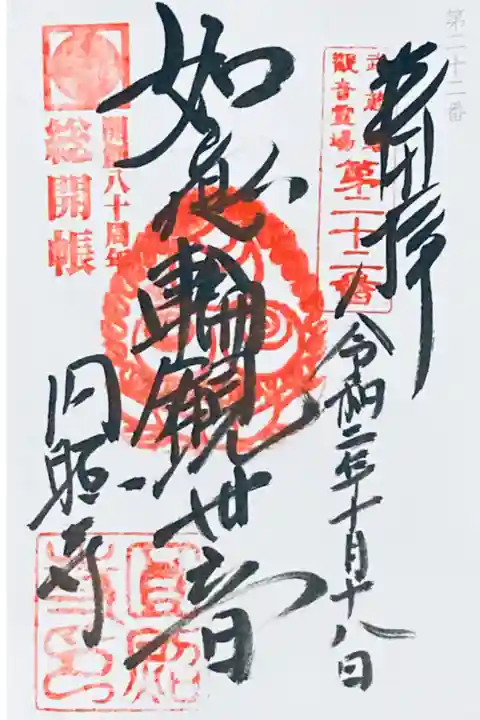 第二十二番
奉拝
令和二年十月十八日
武蔵
観音霊場
第二十二番
如意輪観世音
円照寺
開創八十周年
総開帳
円照寺印